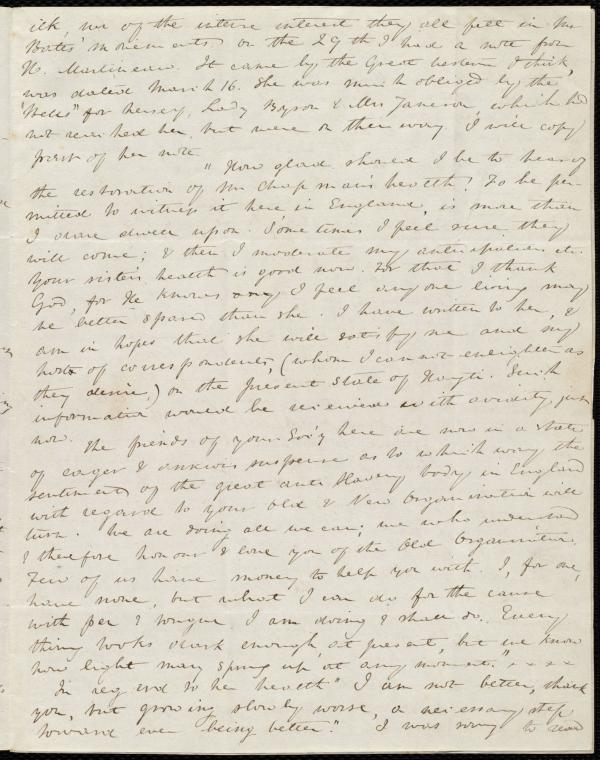 ick, me of the intense interest they all felt in Mr
Bates' movements on the 29th I had a note from
H. Martineau. It came by the Great Western I think,
was dated March 16. She was much obliged by the
"Bells" for herself, Lady Byron & Mrs Jameson, which had
not reached her, but were on their way. I will copy
part of her note
"How glad should I be to hear of
the restoration of Mr Chapman's health! To be per-
mitted to witness it here in England, is more than
I dare dwell upon. Sometimes I feel sure they
will come; & then I moderate my anticipations &c.
Your sister's health is good now. For that I thank
God, for He knows any I feel any one living may
be better spared than she. I have written to her, &
am in hopes that she will satisfy me and my
host of correspondents, (whom I cannot enlighten as
they desire,) on the present state of Hayti. Such
information would be received with avidity, just
now.
The friends of your Soc'y here are now in a state
of eager & anxious suspense as to which way the
sentiments of the great anti Slavery body in England
with regard to your Old & New Organization will
turn. We are doing all we can; we who understand
& therefore honour & love you of the Old Organization.
Few of us have money to help you with. I, for one,
have none, but what I can do for the cause
with pen & tongue I am doing & shall do. Every
thing looks dark enough at present, but we know
how light may spring up at any moment." x x x x
In regard to her health "I am not better, thank
you, but growing slowly worse, a necessary step
toward ever being better." I was sorry to read